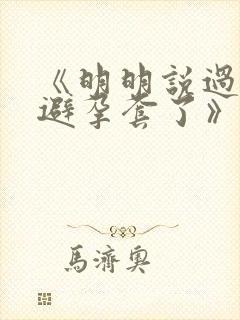 《明明說過
避孕套了》
馬濟奧